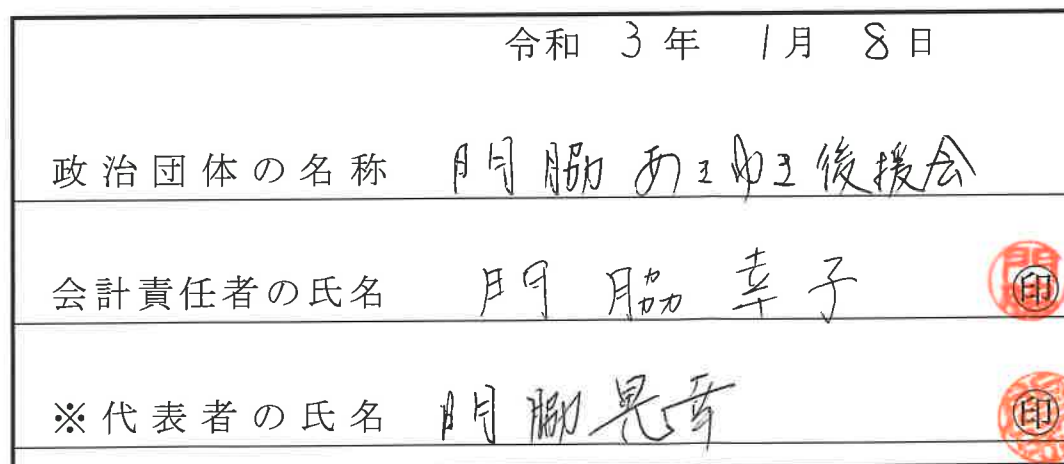 令和 3年 1月 8日
政治団体の名称 門脇あきゆき後援会
会計責任者の氏名 門脇幸子 印
※代表者の氏名 門脇晃幸 印